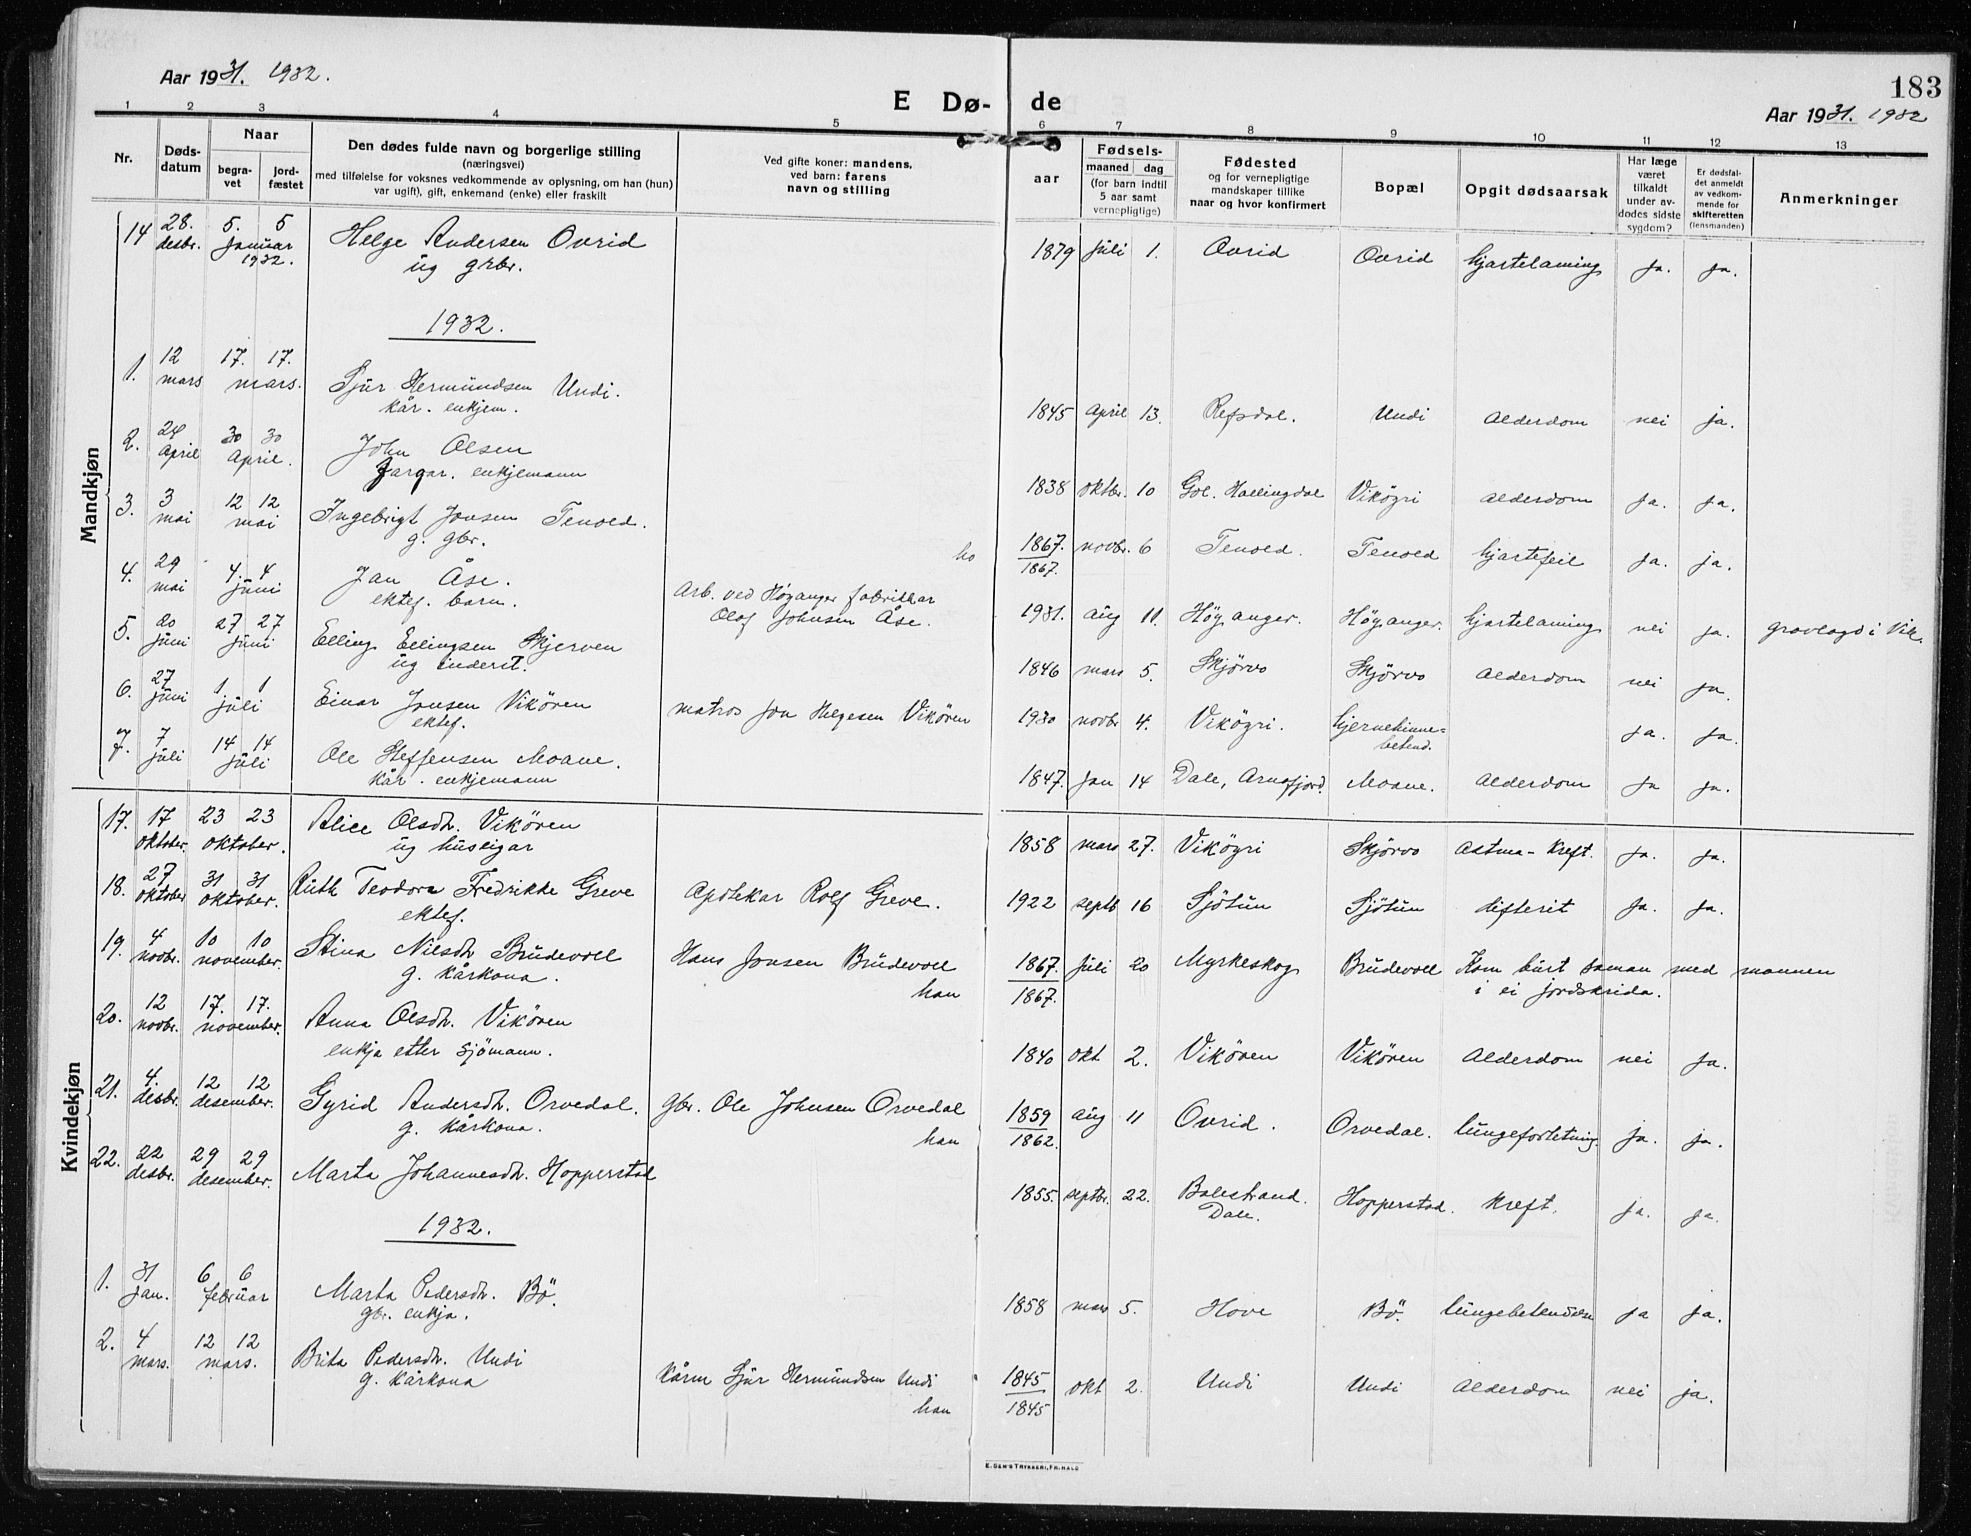 Aar 1931. 1932.
E Dø- de
183
Aar 1931. 1932
1 2 3 4 5 6 7 8 9 10 11 12 13
Nr.
Døds-
datum
Naar
begra-
vet
jord-
fæstet
Den dødes fulde navn og borgerlige stilling
(næringsvei)
med tilføielse for voksnes vedkommende av oplysning, om han (hun)
var ugift), gift, enkemand (enke) eller fraskilt
Ved gifte koner: mandens,
ved barn: farens
navn og stilling
aar
Fødsels-
maaned dag
(for barn indtil
5 aar samt
vernepligtige)
Fødested
og for vernepligtige
mandskaper tillike
naar og hvor konfirmert
Bopæl
Opgit dødsaarsak
Har læge
været
tilkaldt
under av-
dødes sidste
sygdom?
Er dødsfal-
det anmeldt
av vedkom-
mende for
skifteretten
(lensmanden)
Anmerkninger
Mandkjøn
14 28. desbr. 5. 5 januar 1932. Helge Andersen Ovrid 1879 juli 1. Ovrid Ovrid hjartelaming ja. ja.
ug grbr.
1932.
1. 12 mars 17. 17. mars. Sjur Hermundsen Undi. 1845 april 13. Refsdal. Undi Alderdom nei ja.
kår. enkjem.
2. 24 april 30 30 april. John Olsen 1838 oktbr. 10 Gol. Hallingdal Vikøyri Alderdom ja. ja.
Fargar. enkjemann
3. 3 mai 12 12 mai Ingebrigt Jonsen Tenold. 1867. novbr. 6 Tenold. Tenold hjartefeil ja. ja.
g. gbr. ho 1867.
4. 29 mai 4. 4 juni Jan Åse. Arb. ved Høyanger fabrikkar 1931. aug 11. Höyanger. Höyanger. hjartelaming nei ja. gravlagd i Vik.
ektef. barn. Olaf Johnsen Åse.
5. 20 juni 27 27 juni Elling Ellingsen Skjerven 1846 mars 5. Skjörvo Skjörvo Alderdom nei ja.
ug inderst.
6. 27 juni 1 1 juli Einar Jonsen Vikören matros Jon Helgesen Vikören 1930 novbr 4. Vikøyri. hjernehinne= ja. ja.
ektef. betend.
7. 7 juli 14 14 juli Ole Steffensen Moane. 1847. jan 14 Dale, Arnafjord. Moane. Alderdom ja ja.
kår. enkjemann
Kvindekjøn
17. 17 oktober. 23 23 oktober. Alice Olsdtr. Vikören 1858 mars 27. Vikøyri Skjörvo Astma - kreft. ja. ja.
ug huseigar
18. 27 oktober 31 31 oktober. Ruth Teodora Fredrikke Greve Apotekar Rolf Greve. 1922 septb 16 Sjötun Sjötun difterit ja. ja.
ektef.
19. 4 novbr. 10 10 november. Stina Nilsdtr Brudevoll Hans Jonsen Brudevoll 1867. juli 20 Myrkeskog Brudevoll Kom burt saman med mannen
g. kårkona. han 1867. i ei jordskrida.
20. 12 novbr. 17. 17. november. Anna Olsdtr. Vikören 1840 okt 2. Vikören Vikören Alderdom nei ja.
enkja etter sjömann.
21. 4. desbr. 12 12 desember. Gyrid Andersdtr. Orvedal. Gbr. Ole Johnsen Orvedal 1859 aug 11 Ovrid. Orvedal. lungefortetning ja. ja.
g. kårkona. han 1862.
22. 22 desbr. 29 29 desember. Marta Johannesdtr. Hopperstad 1855. septbr. 22. Balestrand. Hopperstad. Kreft. ja. ja.
Dale.
1932.
1. 31 jan. 6 6 februar Marta Pedersdtr. Bö. 1858 mars 5. Hove Bö. lungebetendelse ja ja.
gbr. enkja.
2. 4 mars. 12 12 mars. Brita Pedersdtr. Undi Kårm Sjur Hermundsen Undi 1845 okt 2. Undi Undi Alderdom nei ja.
g. kårkona han 1845
E. SEM'S TRYKKERI, FR.HALD